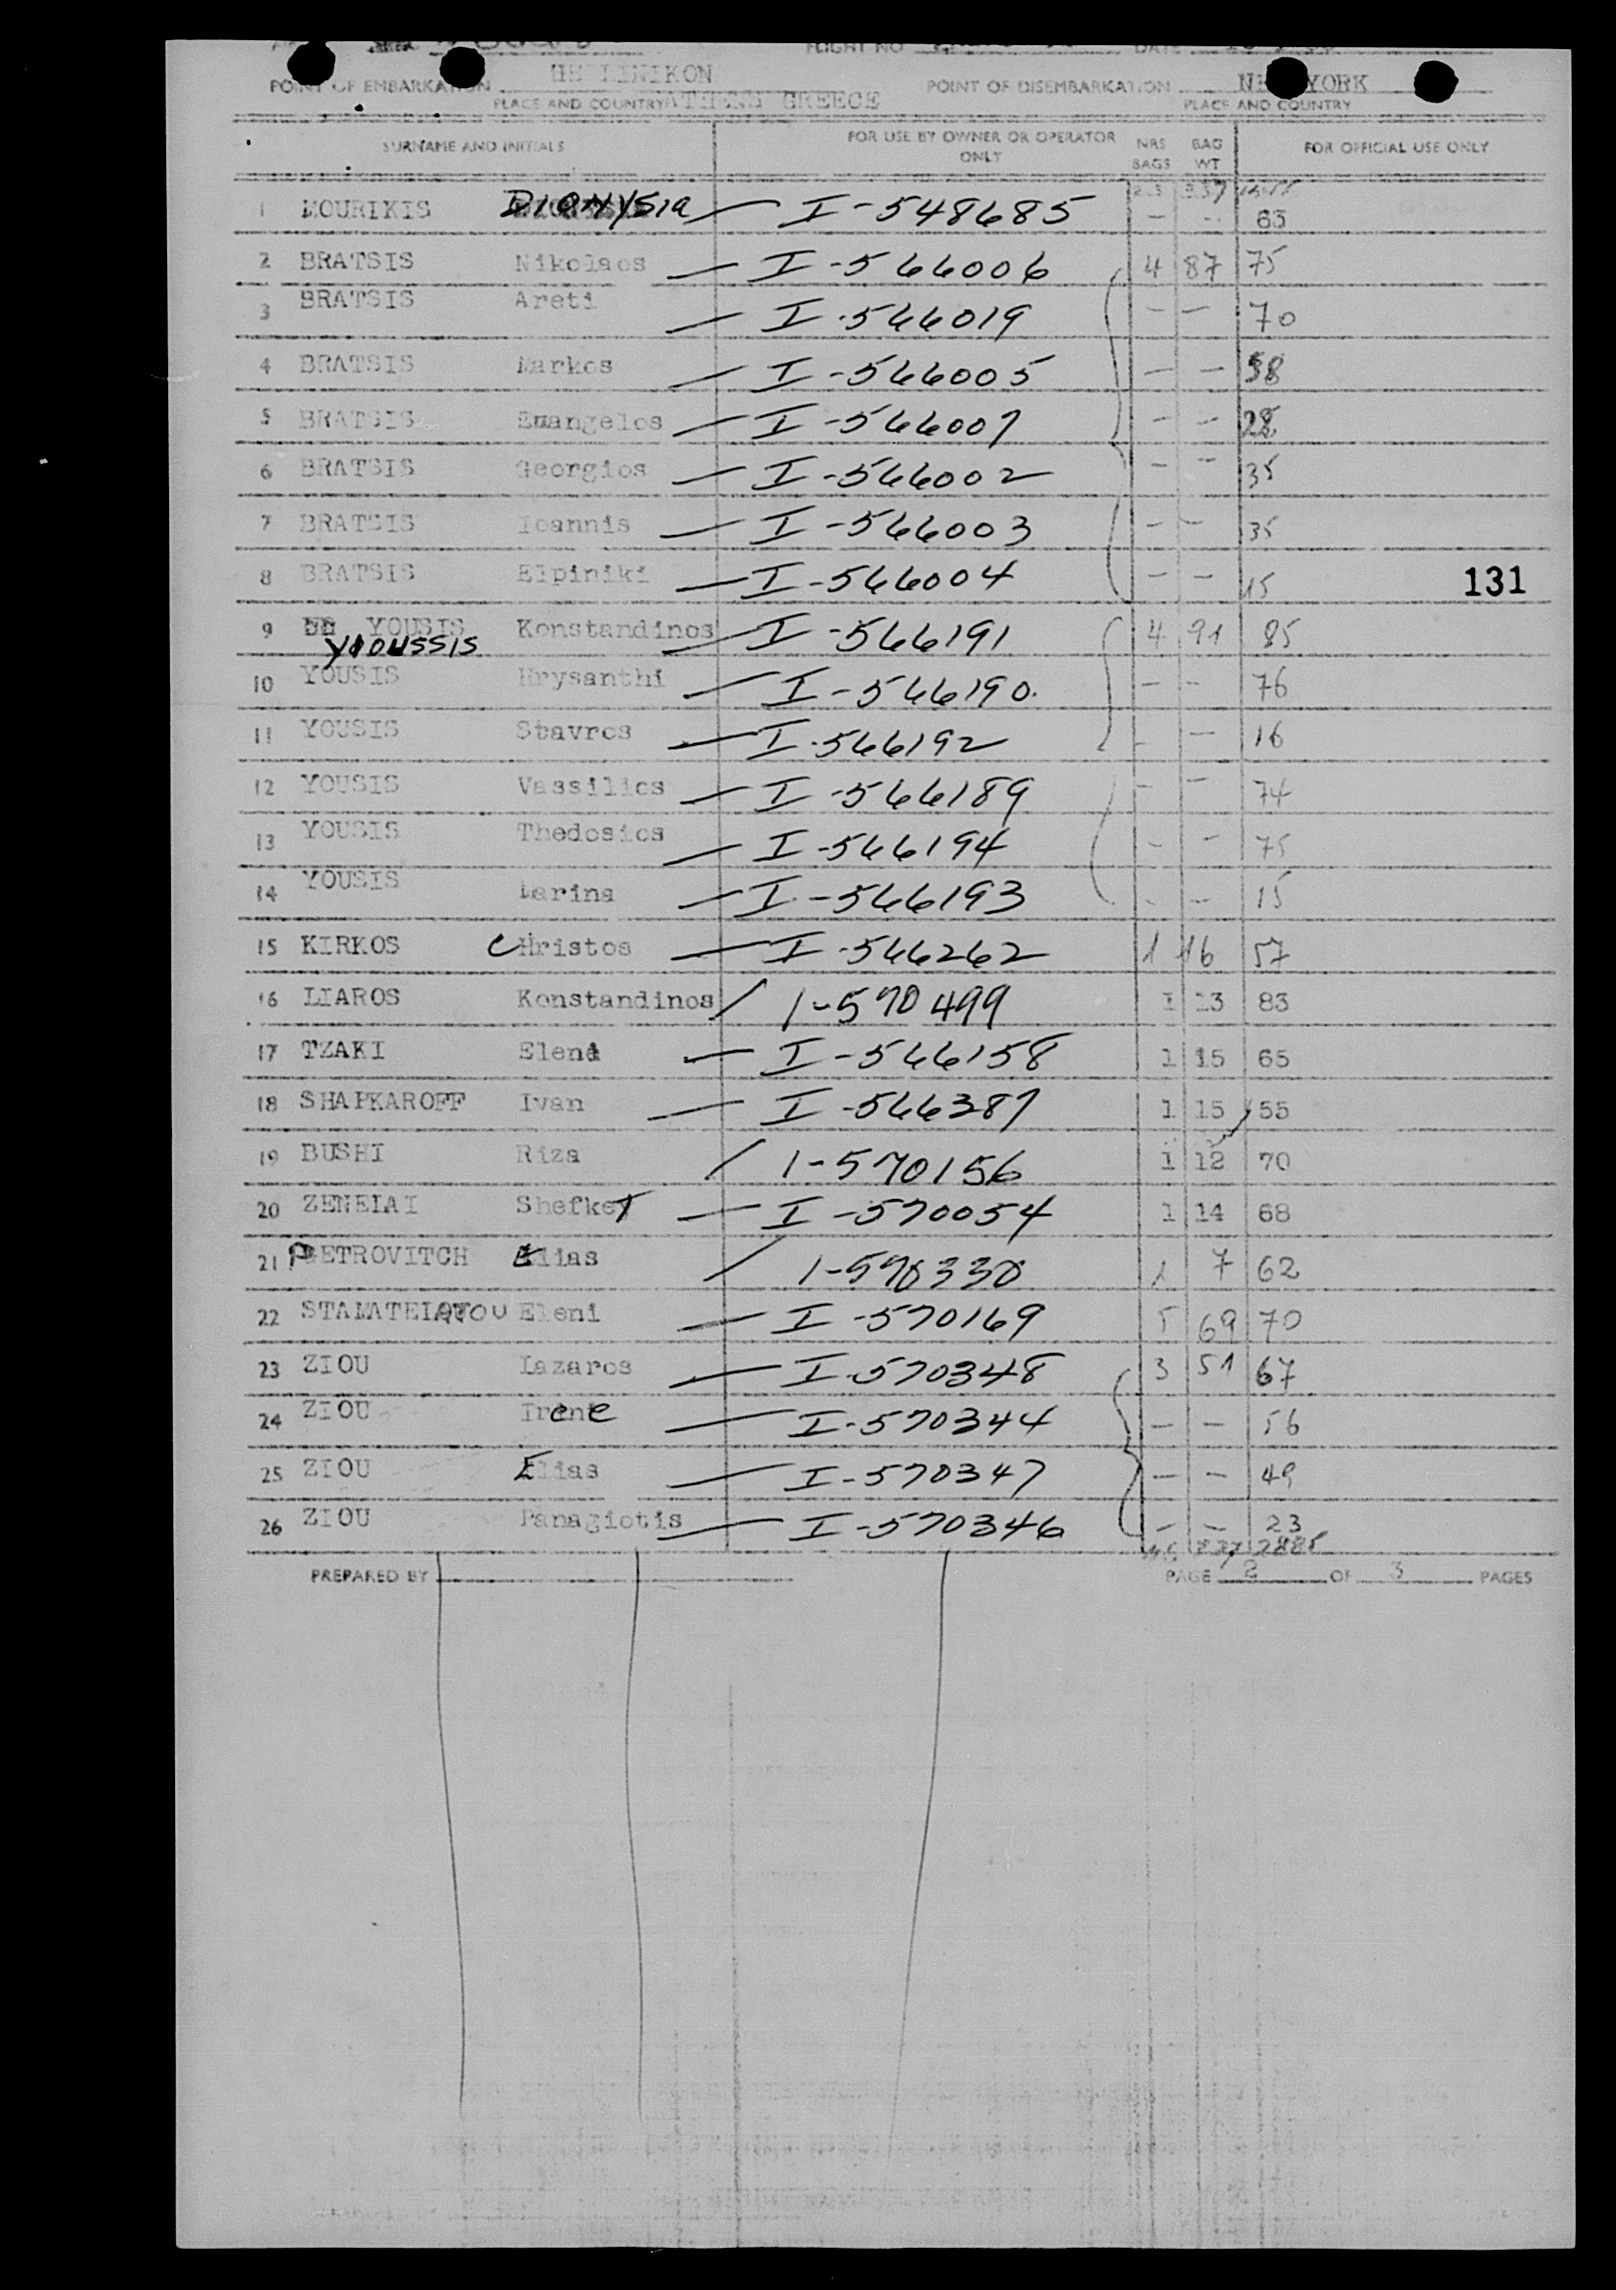 FLIGHT NO DATE
POINT OF EMBARKATION HELLINIKON POINT OF DISEMBARKATION NEW YORK
PLACE AND COUNTRY ATHENS GREECE PLACE AND COUNTRY
SURNAME AND INITIALS FOR USE BY OWNER OR OPERATOR ONLY NRS BAGS BAG WT FOR OFFICIAL USE ONLY
1 MOURIKIS DIONYSIA — I-548685 — — 63
2 BRATSIS Nikolaos — I-566006 4 87 75
3 BRATSIS Areti — I-566019 — — 70
4 BRATSIS Markos — I-566005 — — 58
5 BRATSIS Euangelos — I-566007 — — 28
6 BRATSIS Georgios — I-566002 — — 35
7 BRATSIS Ioannis — I-566003 — — 35
8 BRATSIS Elpiniki — I-566004 — — 15
131
9 YOUSIS Konstandinos — I-566191 4 91 85
YIOUSSIS
10 YOUSIS Hrysanthi — I-566190. — — 76
11 YOUSIS Stavros — I-566192 - — 16
12 YOUSIS Vassilios — I-566189 — — 74
13 YOUSIS Thedosios — I-566194 - - 75
14 YOUSIS Marina — I-566193 - - 15
15 KIRKOS CHristos — I-566262 1 16 57
16 LIAROS Konstandinos / 1-570499 1 13 83
17 TZAKI Eleni — I-566158 1 15 65
18 SHAPKAROFF Ivan — I-566387 1 15 55
19 BUSHI Riza / 1-570156 1 12 70
20 ZENELAI Shefket — I-570054 1 14 68
21 PETROVITCH Elias / 1-570330 1 7 62
22 STAMATELATOU Eleni — I-570169 5 69 70
23 ZIOU Lazaros — I-570348 3 51 67
24 ZIOU Irene — I-570344 — — 56
25 ZIOU Elias — I-570347 — — 49
26 ZIOU Panagiotis — I-570346 — — 23
PREPARED BY PAGE 2 OF 3 PAGES